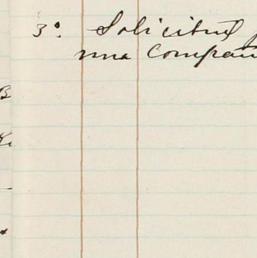 3º. Solicitud
una Compañ